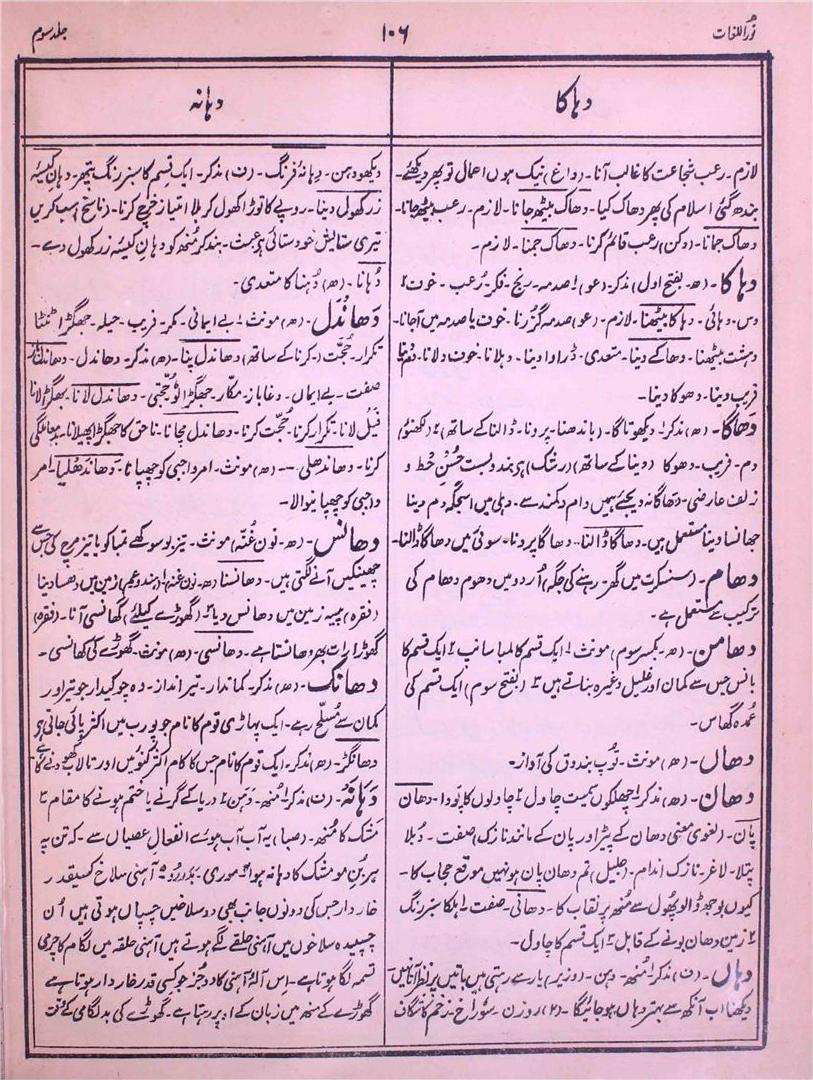 نورُاللغات
۱۰۶
جلد سوم
دہاکا
دہانہ
لازم۔ رعب شجاعت کا غالب آنا۔ (داغ) نیک ہوں اعمال تو پھر دیکھئے۔
بندھ گئی اسلام کی پھر دھاک کیا۔ دھاک بیٹھ جانا۔ لازم۔ رعب بیٹھ جانا۔
دھاک جمانا۔ (دکن) رعب قائم کرنا۔ دھاک جمنا۔ لازم۔
دہاکا۔ (ھ۔ بفتح اول) مذکر۔ (عو) ۱ صدمہ۔ رنج۔ فکر۔ رُعب۔ خوف ۲
دس۔ دہائی۔ دہاکا بیٹھنا۔ لازم۔ (عو) صدمہ گزرنا۔ خوف یا صدمہ میں آجانا۔
دہشت بیٹھنا۔ دھاکے دینا۔ متعدی۔ ڈراوا دینا۔ دہلانا۔ خوف دلانا۔
فریب دینا۔ دھوکا دینا۔
دھاگا۔ (ھ) مذکر ۱ دیکھو تاگا۔ (باندھنا۔ پرونا۔ ڈالنا کے ساتھ) ۲ (لکھنؤ)
دم۔ فریب۔ دھوکا (دینا کے ساتھ) (رشک) ہی بند و بست حُسنِ خط و
زلف عارضی۔ دھاگا نہ دیجئے ہمیں دام و کمند سے۔ دہلی میں اسجگہ دم دینا
جھانسا دینا مستعمل ہیں۔ دھاگا ڈالنا۔ دھاگا پرونا۔ سوئی میں دھاگا ڈالنا۔
دھام۔ (سنسکرت میں گھر۔ رہنے کی جگہ) اُردو میں دھوم دھام کی
ترکیب سے مستعمل ہے۔
دھامن۔ (ھ۔ بکسر سوم) مونث ۱ ایک قسم کا لمبا سانپ ۲ ایک قسم کا
بانس جس سے کمان اور غلیل وغیرہ بناتے ہیں ۳ (بفتح سوم) ایک قسم کی
عُمدہ گھاس۔
دھاں۔ (ھ) مونث۔ توپ بندوق کی آواز۔
دھان۔ (ھ) مذکر ۱ چھلکوں سمیت چاول ۲ چاولوں کا پودا۔ دھان
پان۔ (لغوی معنی دھان کے پیڑ اور پان کے مانند نازک) صفت۔ دُبلا
پتلا۔ لاغر۔ نازک اندام۔ (جلیل) تم دھان پان ہو نہیں موقع حجاب کا۔
کیوں بوجھ ڈالو پھول سے مُنھ پر نقاب کا۔ دھانی۔ صفت ۱ ہلکا سبز رنگ
۲ زمین دھان بونے کے قابل ۳ ایک قسم کا چاول۔
دہاں۔ (ف) مذکر ۱ منھ۔ دہن۔ (وزیر) یار سے رہتی ہیں باتیں پر نظر آتا نہیں
دیکھنا اب آنکھ سے بہتر دہاں ہو جائیگا۔ (۲) روزن۔ سُوراخ۔ زخم کا شگاف
دیکھو دہن۔ دہانۂ فرنگ۔ (ف) مذکر۔ ایک قسم کا سبز رنگ پتھر۔ دہانِ کیسۂ
زر کھول دینا۔ روپے کا توڑا کھول کر بلا امتیاز خرچ کرنا۔ (ناسخ) سب کریں
تیری ستایش خود ستائی ہی عبث۔ بند کر مُنھ کو دہانِ کیسۂ زر کھول دے۔
دُہانا۔ (ھ) دُہنا کا متعدی۔
دَھاندَل۔ (ھ) مونث ۱ بے ایمانی۔ مکر۔ فریب۔ حیلہ۔ جھگڑا ٹنٹا
تکرار۔ حُجت۔ (کرنا کے ساتھ) دھاندل پنا۔ (ھ) مذکر۔ دھاندل۔
صفت۔ بے ایمان۔ دغاباز۔ مکّار۔ جھگڑالو۔ حُجتی۔ دھاندل لانا۔ جھگڑا لانا
فَیل لانا۔ تکرار کرنا۔ حُجت کرنا۔ دھاندل مچانا۔ ناحق کا جھگڑا پھیلانا۔
کرنا۔ دھاندھلی۔۔ (ھ) مونث۔ امر واجبی کو چھپانا۔ دھاندھلیا۔ امر
واجبی کو چھپانیوالا۔
دھانس۔ (ھ۔ نون غُنّہ) مونث۔ تیز بو سوکھے تمباکو یا تیز مرچ کی جس سے
چھینکیں آنے لگتی ہیں۔ دھانسنا (ھ۔ نون غنہ) ۱ (ہندو۔ عم) زمین میں دھسا دینا
(فقرہ) پیسہ زمین میں دھانس دیا ۲ (گھوڑے کیلئے) کھانسی آنا۔ (فقرہ)
گھوڑا رات بھر دھانستا ہے۔ دھانسی۔ (ھ) مونث۔ گھوڑے کی کھانسی۔
دھانک۔ (ھ) مذکر۔ کماندار۔ تیر انداز۔ وہ چوکیدار جو تیر اور
کمان سے مُسلّح رہے۔ ایک پہاڑی قوم کا نام جو پورب میں اکثر پائی جاتی ہی
دھانگڑ۔ (ھ) مذکر۔ ایک قوم کا نام جس کا کام اکثر کنوئیں اور تالاب کھودنے کا ہے
دَہَانَہ۔ (ف) مذکر ۱ مُنھ۔ دَہَن ۲ دریا کے گرنے یا ختم ہونے کا مقام ۳
مَشک کا مُنھ۔ (صبا) یہ آب آب ہوئے انفعالِ عصیاں سے۔ کہ تن پہ
ہر بُن مو مشک کا دہانہ ہوا ۴ موری۔ بدررو ۵ آہنی سلاخ کسیقدر
خاردار جس کی دونوں جانب بھی دو سلاخیں چسپاں ہوتی ہیں اُن
چسپیدہ سلاخوں میں آہنی حلقے لگے ہوتے ہیں آہنی حلقہ میں لگام کا چرمی
تسمہ لگا ہوتا ہے۔ اِس آلۂ آہنی کا وہ جُز جو کسی قدر خاردار ہوتا ہے
گھوڑے کے منھ میں زبان کے اوپر رہتا ہے۔ گھوڑے کی بد لگامی کے وقت